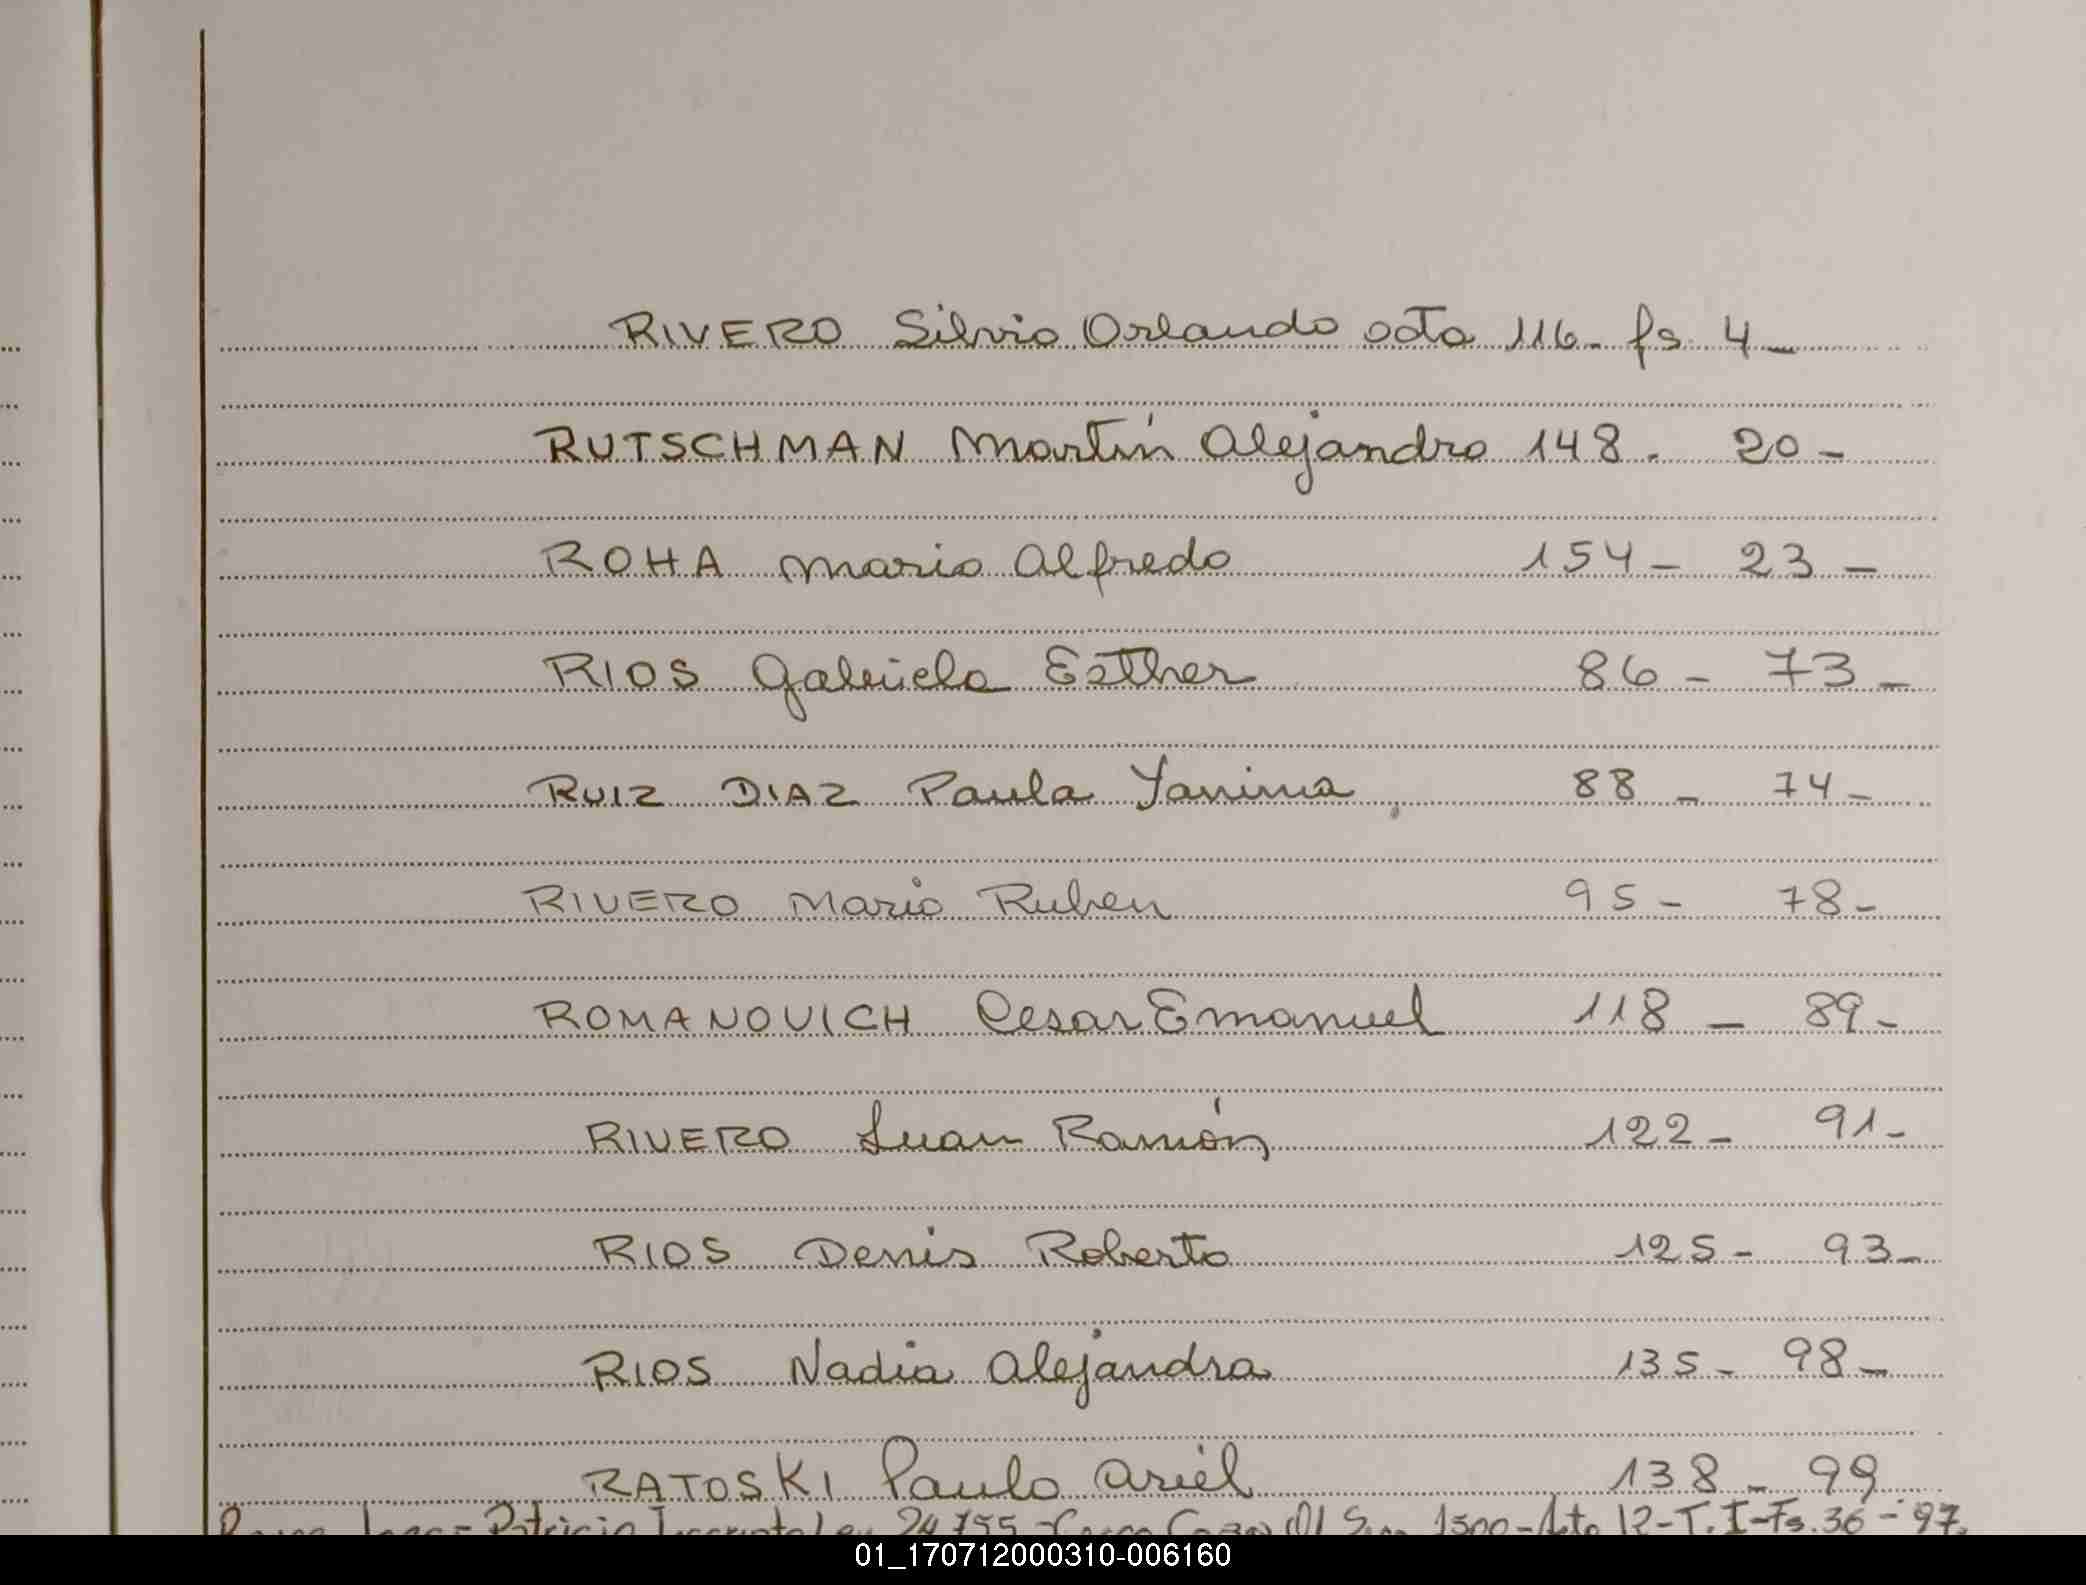 RIVERO Silvio Orlando acta 116- fs 4-
RUTSCHMAN Martín Alejandro 148. 20-
ROHA Mario Alfredo 154- 23-
RIOS Gabriela Esther 86- 73-
RUIZ DIAZ Paula Yanina 88- 74-
RIVERO Mario Ruben 95- 78-
ROMANOVICH Cesar Emanuel 118- 89-
RIVERO Juan Ramón 122- 91-
RIOS Denis Roberto 125- 93-
RIOS Nadia Alejandra 135- 98-
RATOSKI Paulo Ariel 138- 99
Patricia 24755 1300-Acto 12-T.I-Fs.36-97.
01_170712000310-006160